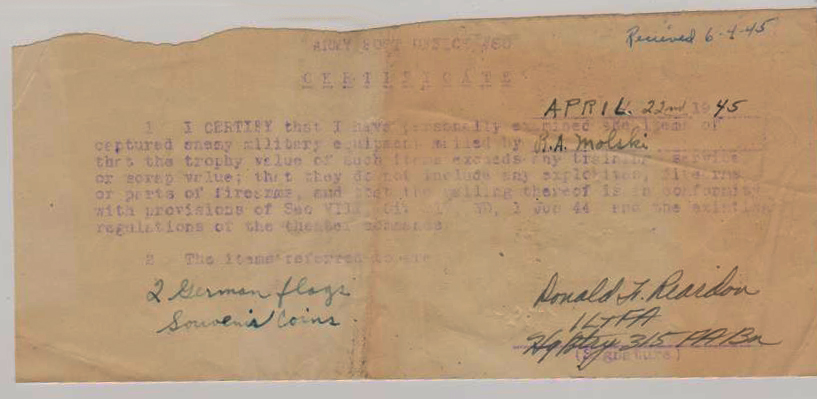 Recieved 6-4-45
ARMY POST OFFICE 460
CERTIFICATE
APRIL 22nd 1945
1 I CERTIFY that I have personally examined the items of
captured enemy military equipment mailed by R.A. Molski
that the trophy value of such items exceeds any training service
or scrap value; that they do not include any explosives, firearms
or parts of firearms, and that the mailing thereof is in conformity
with provisions of Sec VIII, Cir 1 Jun 44 and the existing
regulations of the theater
2 The items referred to are
2 German flags
Souvenir Coins
Donald F. Reardon
1LT FA
Hq Btry 315 FA Bn
(Signature)